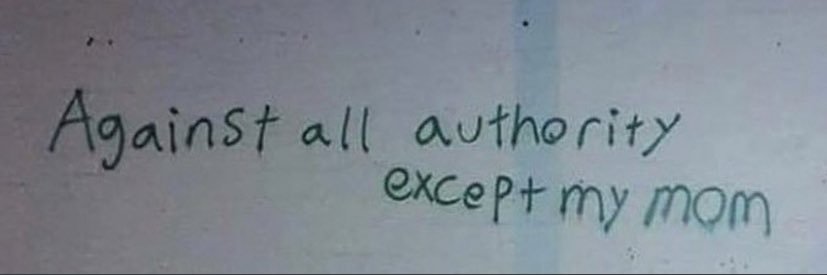 Against all authority
except my mom